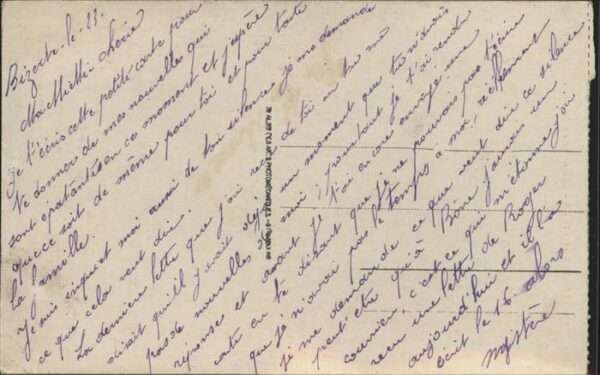 Bizerte-le-23.
Ma Mimi chérie
Je t'écris cette petite carte pour
te donner de mes nouvelles qui
sont épatantes en ce moment et j'espère
que ce soit de même pour toi et pour toute
la famille.
Je suis inquiet moi aussi de ton silence je me demande
ce que cela veut dire.
La dernière lettre que j'ai reçu de toi ou tu me
disait qu'il y avait déjà un moment que tu n'avais
pas de nouvelles de moi, pourtant je t'ai rendu
réponse et avant je t'ai encore envoyé une
carte en te disant que je ne pouvais pas t'écrire
que je n'avais pas le temps à moi, réellement
je me demande ce que veut dire ce silence
peut'être qu'à Bône j'aurais un
courrier, c'est ce qui m'étonne j'ai
reçu une lettre de Roger
aujourd'hui et il l'a
écrit le 16 alors
mystère